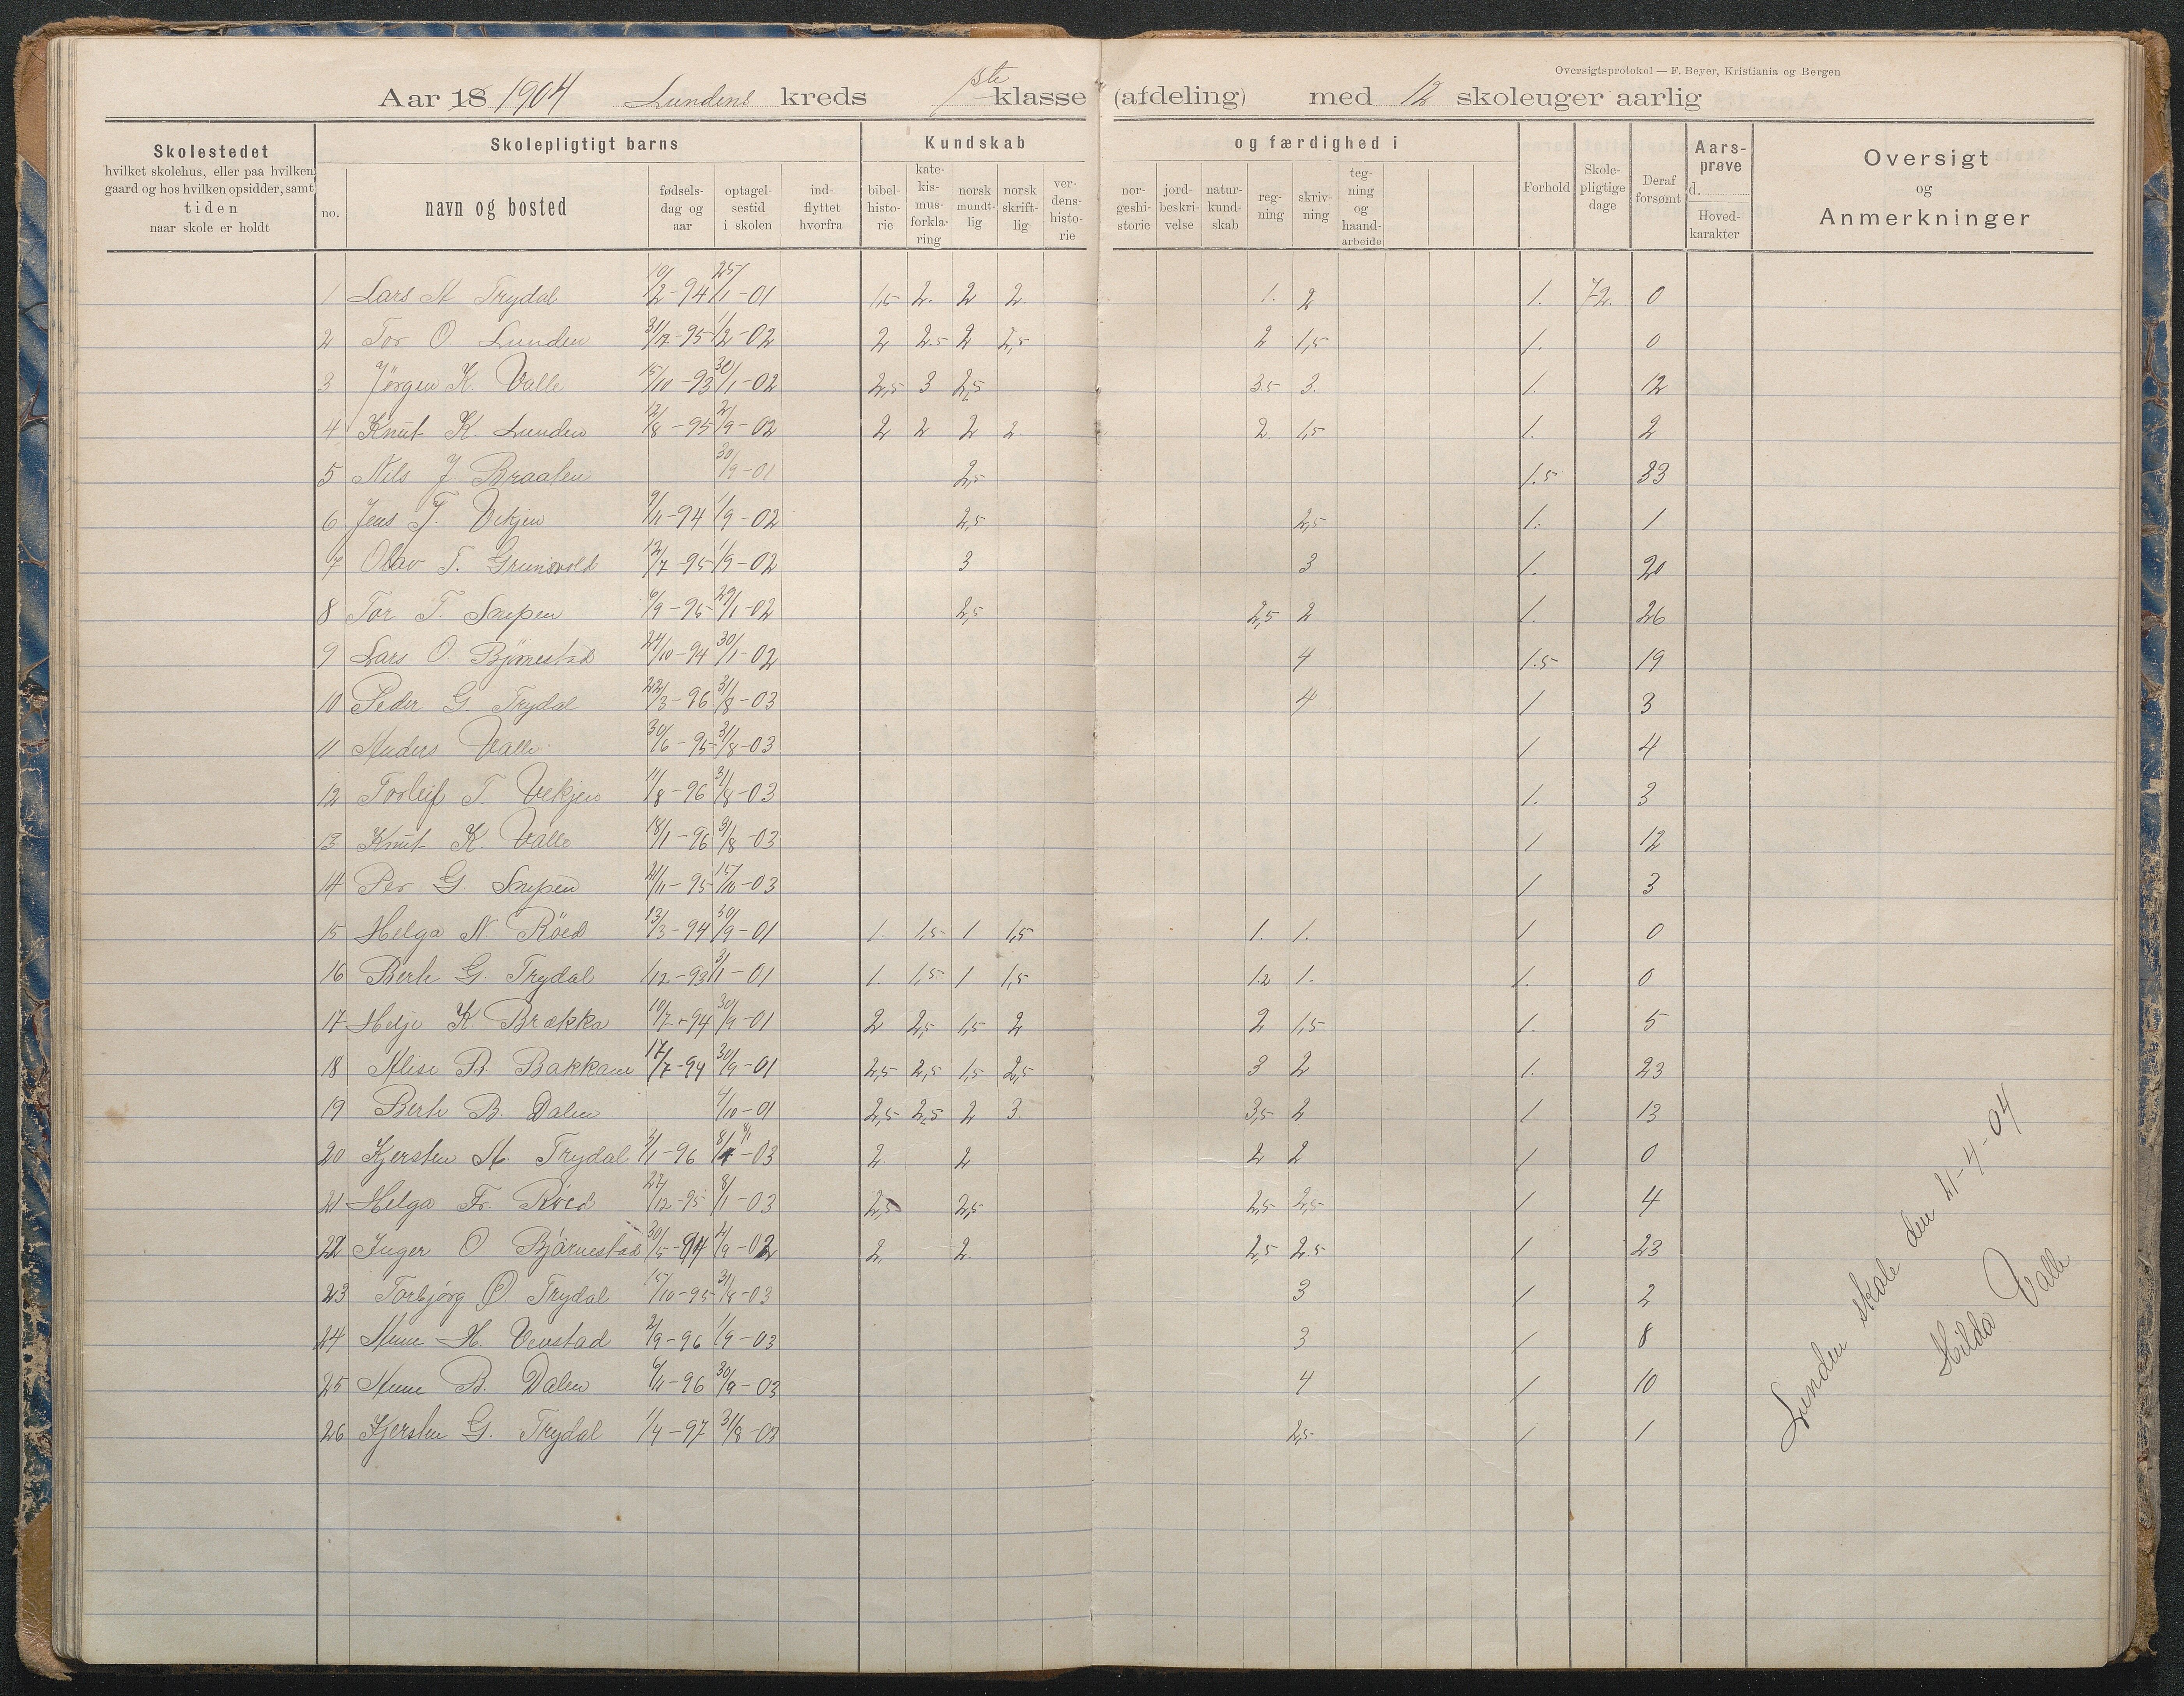 Oversigtsprotokol — F. Beyer, Kristiania og Bergen
Aar 18 1904 Lundens kreds 1ste klasse (afdeling) med 12 skoleuger aarlig
Skolestedet hvilket skolehus, eller paa hvilken gaard og hos hvilken opsidder, samt tiden naar skole er holdt
Skolepligtigt barns
no. navn og bosted fødsels-dag og aar optagel-sestid i skolen ind-flyttet hvorfra
Kundskab og færdighed i
bibel-histo-rie kate-kis-mus-forkla-ring norsk mundt-lig norsk skrift-lig ver-dens-histo-rie nor-geshi-storie jord-beskri-velse natur-kund-skab reg-ning skriv-ning teg-ning og haand-arbeide
Forhold Skole-pligtige dage Deraf forsømt Aars-prøve d. Hoved-karakter
Oversigt og Anmerkninger
1 Lars A Trydal 10/2-94 25/1-01 1,5 2. 2 2. 1. 2 1. 72. 0
2 Tor O. Lunden 31/12-95 1/2-02 2 2.5 2 2,5 2 1,5 1. 0
3 Jørgen K. Valle 15/10-93 30/1-02 2,5 3 2,5 3.5 3. 1. 12
4 Knut K. Lunden 12/8-95 2/9-02 2 2 2 2. 2. 1,5 1. 2
5 Nils J. Braaten 30/9-01 2,5 1.5 33
6 Jens T. Vekjen 9/11-94 1/9-02 2,5 2,5 1. 1
7 Olav T. Grunsvold 12/7-95 1/9-02 3 3 1. 20
8 Tor T. Snepen 6/9-95 29/1-02 2,5 2,5 2 1. 26
9 Lars O. Bjørnestad 24/10-94 30/1-02 4 1.5 19
10 Peder G. Trydal 22/3-96 31/8-03 4 1 3
11 Anders Valle 30/6-95 31/8-03 1 4
12 Torleif T. Vekjen 11/8-96 31/8-03 1. 3
13 Knut K. Valle 18/1-96 31/8-03 1 12
14 Per G. Snepen 21/11-95 15/10-03 1 3
15 Helga N Röed 13/3-94 30/9-01 1. 1,5 1 1,5 1. 1. 1 0
16 Berte G. Trydal 1/12-93 31/1-01 1. 1,5 1 1,5 1.2 1. 1. 0
17 Helje K. Brækka 10/7-94 30/9-01 2 2,5 1,5 2 2 1,5 1. 5
18 Alise B Bakkane 17/7-94 30/9-01 2,5 2,5 1,5 2,5 3 2 1. 23
19 Berte B. Dalen 4/10-01 2,5 2,5 2 3. 3,5 2 1 13
20 Kjersten A. Trydal 3/1-96 8/1-03 2. 2 2 2 1 0
21 Helga Fr. Röed 27/12-95 8/1-03 2,5 2,5 2,5 2,5 1 4
22 Inger O. Bjørnestad 30/5-94 2/9-02 2. 2. 2,5 2.5 1 23
23 Torbjørg O. Trydal 15/10-95 31/8-03 3 1 2
24 Anne H. Venstad 2/9-96 1/9-03 3 1 8
25 Anne B. Dalen 6/11-96 30/9-03 4 1 10
26 Kjersten G. Trydal 1/4-97 31/8-03 2,5 1 1
Lunden skole den 21-4-04
Hilda Valle